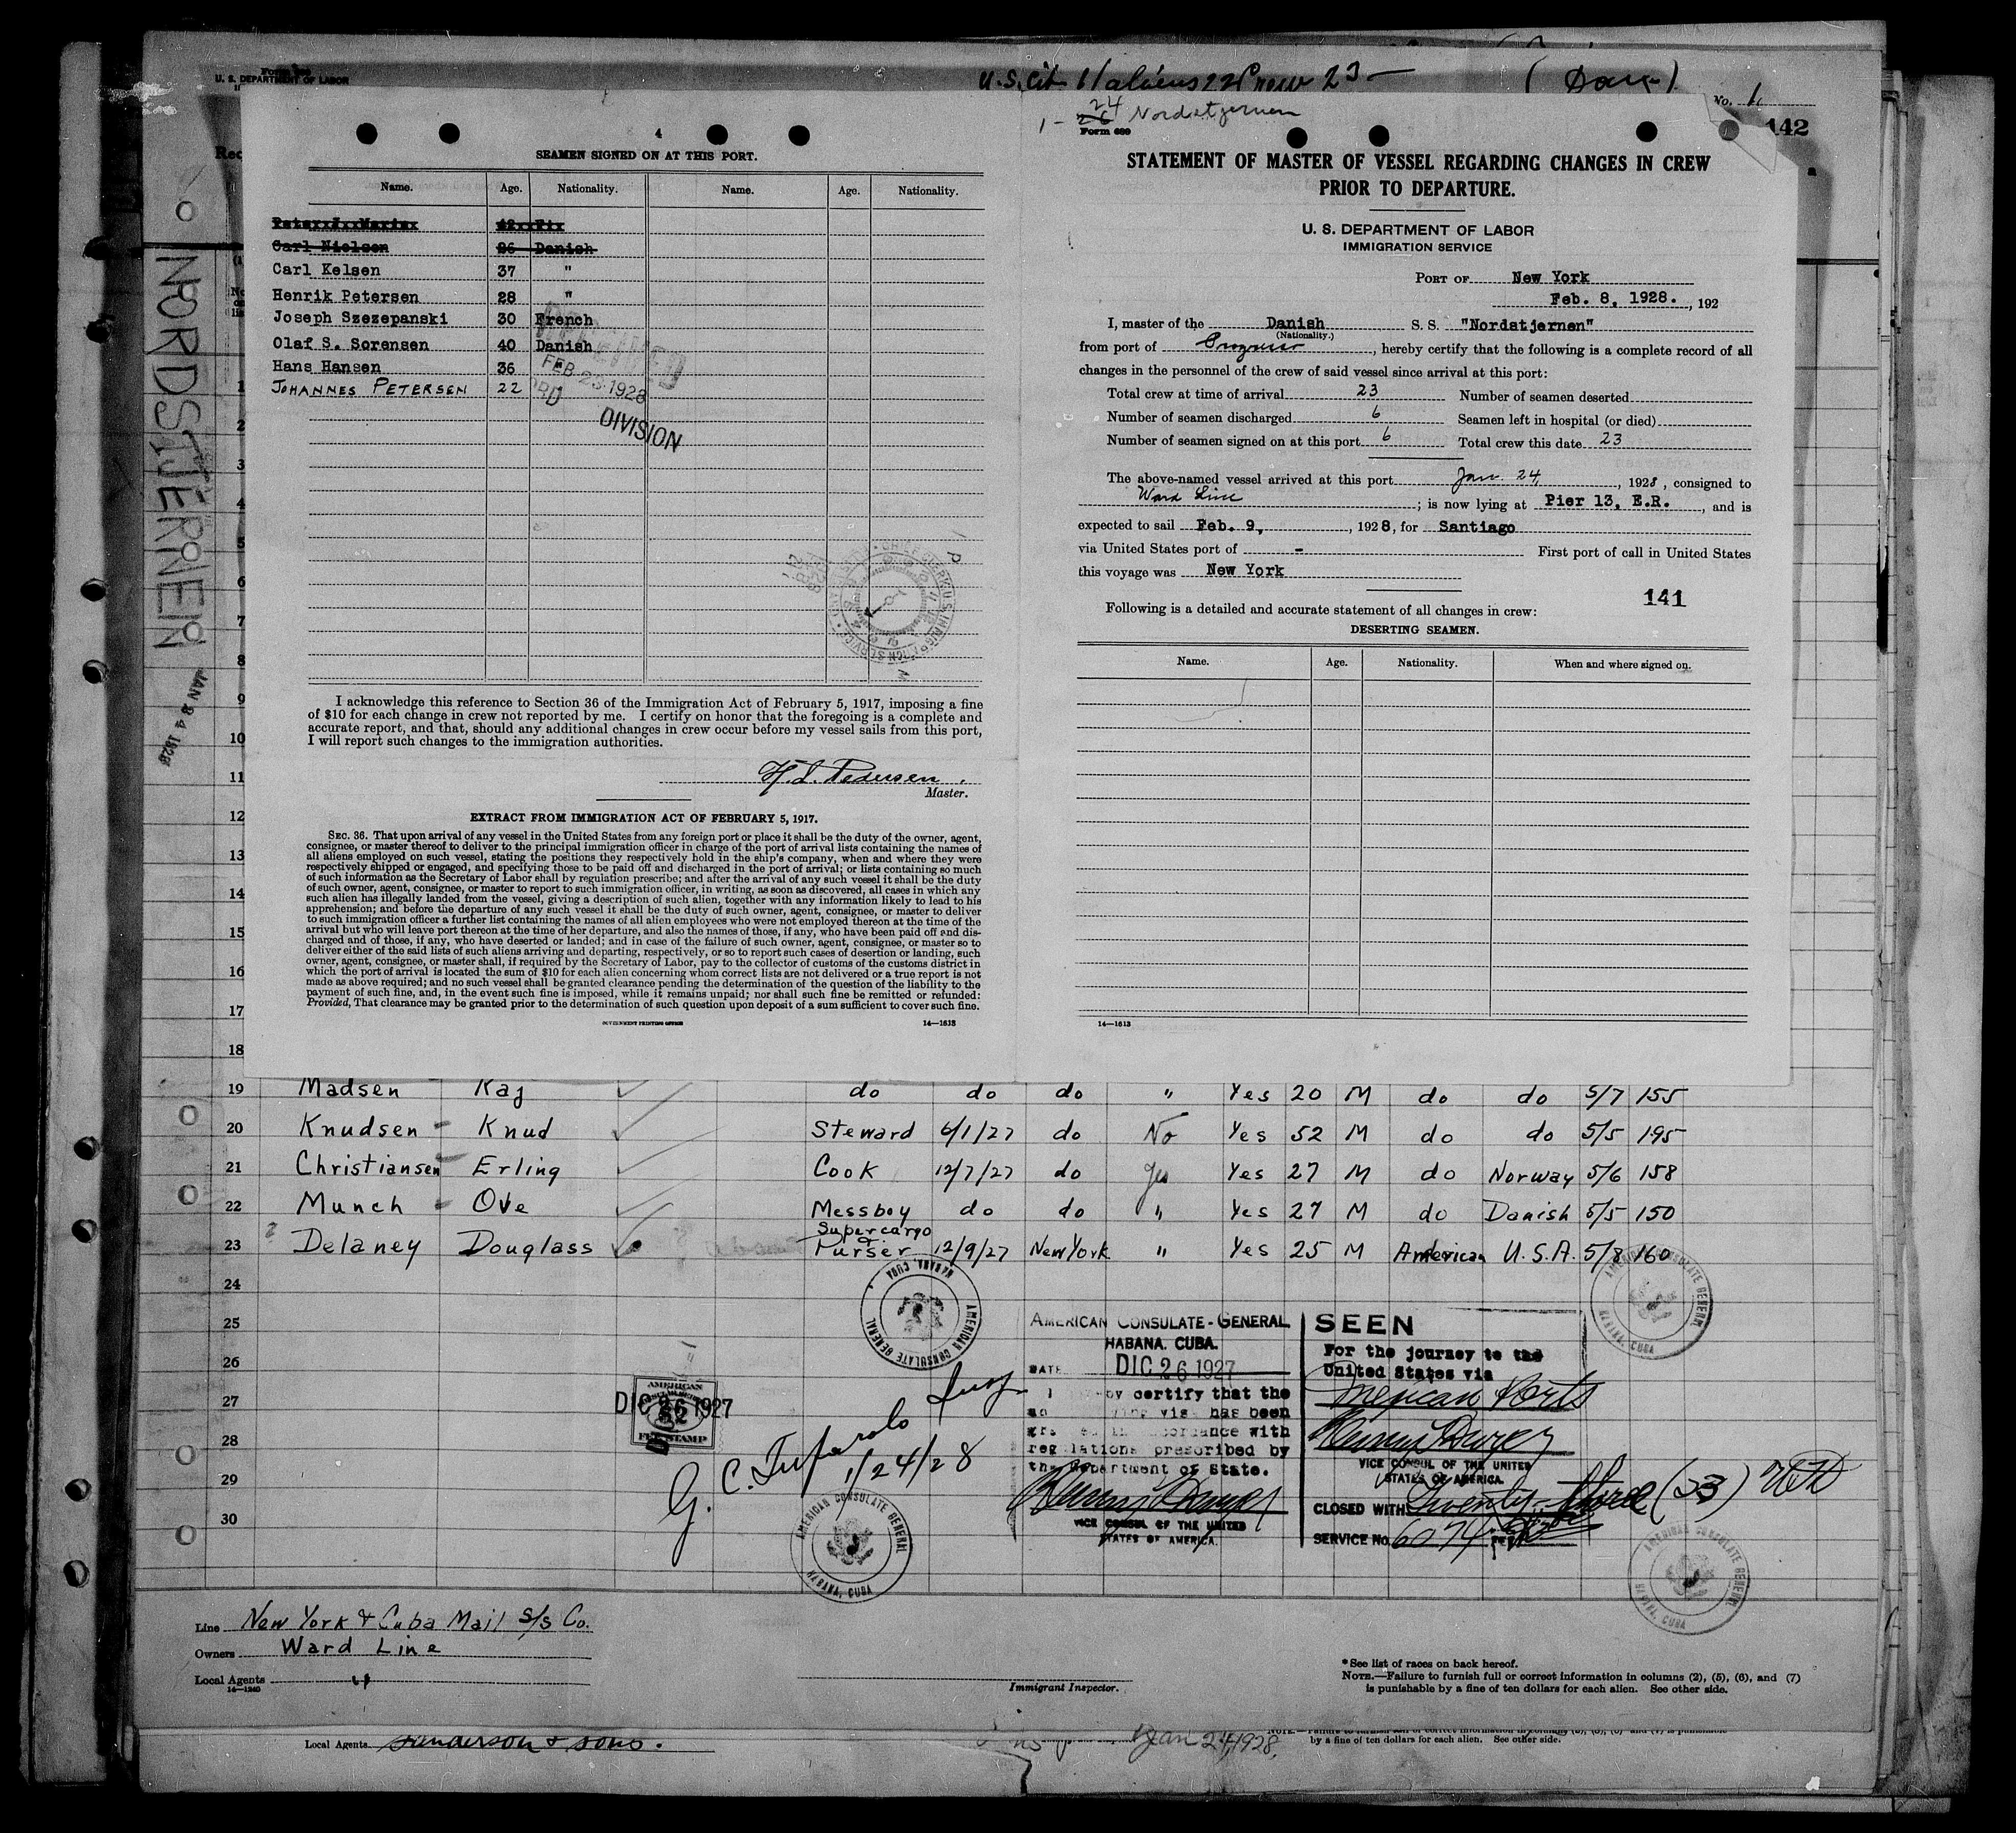 U. S. DEPARTMENT OF LABOR
U.S. Cit 1 / aliens 22 Crew 23 - ( Dan )
No. 1
142
NORDSTJERNEN
JAN 24 1928
4
SEAMEN SIGNED ON AT THIS PORT.
Name. Age. Nationality. Name. Age. Nationality.
Carl Nielsen 26 Danish
Carl Kelsen 37 "
Henrik Petersen 28 "
Joseph Szezepanski 30 French
Olaf S. Sorensen 40 Danish
Hans Hansen 36 "
JOHANNES PETERSEN 22
FEB 23 1928
DIVISION
I acknowledge this reference to Section 36 of the Immigration Act of February 5, 1917, imposing a fine
of $10 for each change in crew not reported by me. I certify on honor that the foregoing is a complete and
accurate report, and that, should any additional changes in crew occur before my vessel sails from this port,
I will report such changes to the immigration authorities.
Pedersen.
Master.
EXTRACT FROM IMMIGRATION ACT OF FEBRUARY 5, 1917.
SEC. 36. That upon arrival of any vessel in the United States from any foreign port or place it shall be the duty of the owner, agent,
consignee, or master thereof to deliver to the principal immigration officer in charge of the port of arrival lists containing the names of
all aliens employed on such vessel, stating the positions they respectively hold in the ship's company, when and where they were
respectively shipped or engaged, and specifying those to be paid off and discharged in the port of arrival; or lists containing so much
of such information as the Secretary of Labor shall by regulation prescribe; and after the arrival of any such vessel it shall be the duty
of such owner, agent, consignee, or master to report to such immigration officer, in writing, as soon as discovered, all cases in which any
such alien has illegally landed from the vessel, giving a description of such alien, together with any information likely to lead to his
apprehension; and before the departure of any such vessel it shall be the duty of such owner, agent, consignee, or master to deliver
to such immigration officer a further list containing the names of all alien employees who were not employed thereon at the time of the
arrival but who will leave port thereon at the time of her departure, and also the names of those, if any, who have been paid off and dis-
charged and of those, if any, who have deserted or landed; and in case of the failure of such owner, agent, consignee, or master so to
deliver either of the said lists of such aliens arriving and departing, respectively, or so to report such cases of desertion or landing, such
owner, agent, consignee, or master shall, if required by the Secretary of Labor, pay to the collector of customs of the customs district in
which the port of arrival is located the sum of $10 for each alien concerning whom correct lists are not delivered or a true report is not
made as above required; and no such vessel shall be granted clearance pending the determination of the question of the liability to the
payment of such fine, and, in the event such fine is imposed, while it remains unpaid; nor shall such fine be remitted or refunded:
Provided, That clearance may be granted prior to the determination of such question upon deposit of a sum sufficient to cover such fine.
GOVERNMENT PRINTING OFFICE 14—1613
1 - 24 Nordstjernen
Form 689
STATEMENT OF MASTER OF VESSEL REGARDING CHANGES IN CREW
PRIOR TO DEPARTURE.
U. S. DEPARTMENT OF LABOR
IMMIGRATION SERVICE
PORT OF New York
Feb. 8, 1928. , 192
I, master of the Danish S. S. "Nordstjernen"
(Nationality.)
from port of Progreso, hereby certify that the following is a complete record of all
changes in the personnel of the crew of said vessel since arrival at this port:
Total crew at time of arrival 23 Number of seamen deserted
Number of seamen discharged 6 Seamen left in hospital (or died)
Number of seamen signed on at this port 6 Total crew this date 23
The above-named vessel arrived at this port Jan. 24, , 1928 , consigned to
Ward Line ; is now lying at Pier 13, E.R. , and is
expected to sail Feb. 9, , 1928, for Santiago
via United States port of - First port of call in United States
this voyage was New York
141
Following is a detailed and accurate statement of all changes in crew:
DESERTING SEAMEN.
Name. Age. Nationality. When and where signed on.
14—1613
1
2
3
4
5
6
7
8
9
10
11
12
13
14
15
16
17
18
19 Madsen Kaj do do do " Yes 20 M do do 5/7 155
20 Knudsen - Knud Steward 6/1/27 do No Yes 52 M do do 5/5 195
21 Christiansen Erling Cook 12/7/27 do Yes Yes 27 M do Norway 5/6 158
22 Munch - Ove Messboy do do " Yes 27 M do Danish 5/5 150
23 Delaney Douglass Supercargo & Purser 12/9/27 New York " Yes 25 M American U.S.A. 5/8 160
24
25
26
27
28
29
30
AMERICAN CONSULATE GENERAL HABANA, CUBA
AMERICAN CONSULATE-GENERAL
HABANA, CUBA.
DATE DIC 26 1927
certify that the
has been
with
regulations prescribed by
the Department of State.
VICE CONSUL OF THE UNITED
STATES OF AMERICA.
SEEN
For the journey to the
United States via
Mexican Ports
VICE CONSUL OF THE UNITED
STATES OF AMERICA.
CLOSED WITH Twenty-three (23)
SERVICE NO. 6074
AMERICAN
DIC 26 1927
FEE STAMP
1/24/28
AMERICAN CONSULATE GENERAL HABANA, CUBA
AMERICAN CONSULATE GENERAL HABANA, CUBA
AMERICAN CONSULATE GENERAL HABANA, CUBA
Line New York & Cuba Mail S/S Co.
Owners Ward Line
Local Agents "
14—1240
Immigrant Inspector.
*See list of races on back hereof.
NOTE.—Failure to furnish full or correct information in columns (2), (5), (6), and (7)
is punishable by a fine of ten dollars for each alien. See other side.
Local Agents Sanderson & Sons.
Jan 24, 1928,
by a fine of ten dollars for each alien. See other side.